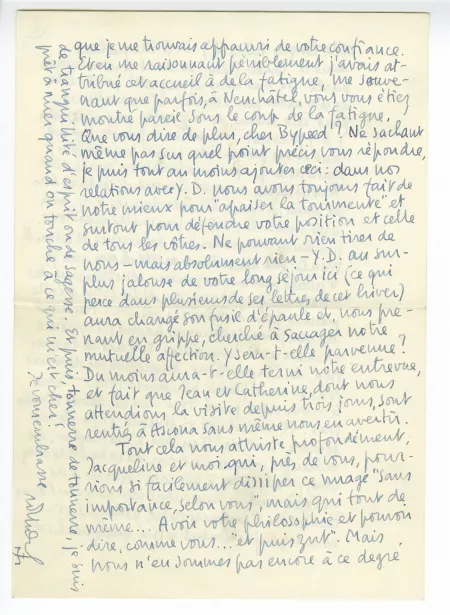 que je me trouvais appauvri de votre confiance.
Et en me raisonnant péniblement j'avais at-
tribué cet accueil à de la fatigue, me souve-
nant que parfois, à Neuchâtel, vous vous étiez
montré pareil sous le coup de la fatigue.
Que vous dire de plus, cher ? Ne sachant
même pas sur quel point précis vous répondre,
je puis tout au moins ajouter ceci: dans nos
relations avec Y.D. nous avons toujours fait de
notre mieux pour "apaiser la tourmente" et
surtout pour défendre votre position et celle
de tous les vôtres. Ne pouvant rien tirer de
nous – mais absolument rien – Y.D. au sur-
plus jalouse de votre long séjour ici (ce qui
perce dans plusieurs de ses lettres de cet hiver)
aura changé son fusil d'épaule et, nous pre-
nant en grippe, cherché à saccager notre
mutuelle affection. Y sera-t-elle parvenue?
Du moins aura-t-elle terni notre entrevue,
et fait que Jean et Catherine, dont nous
attendions la visite depuis trois jours, sont
rentrés à Ascona sans même nous en avertir.
Tout cela nous attriste profondément,
Jacqueline et moi, qui, près de vous, pour-
rions si facilement dissiper ce nuage "sans
importance, selon vous", mais qui tout de
même... Avoir votre philosophie et pouvoir
dire, comme vous... "et puis zut". Mais
nous n'en sommes pas encore à ce degré
de tranquillité d'esprit ou de sagesse. Et puis, tonnerre de tonnerre, je suis
prêt à ruer quand on touche à ce qui m'est cher!
Je vous embrasse